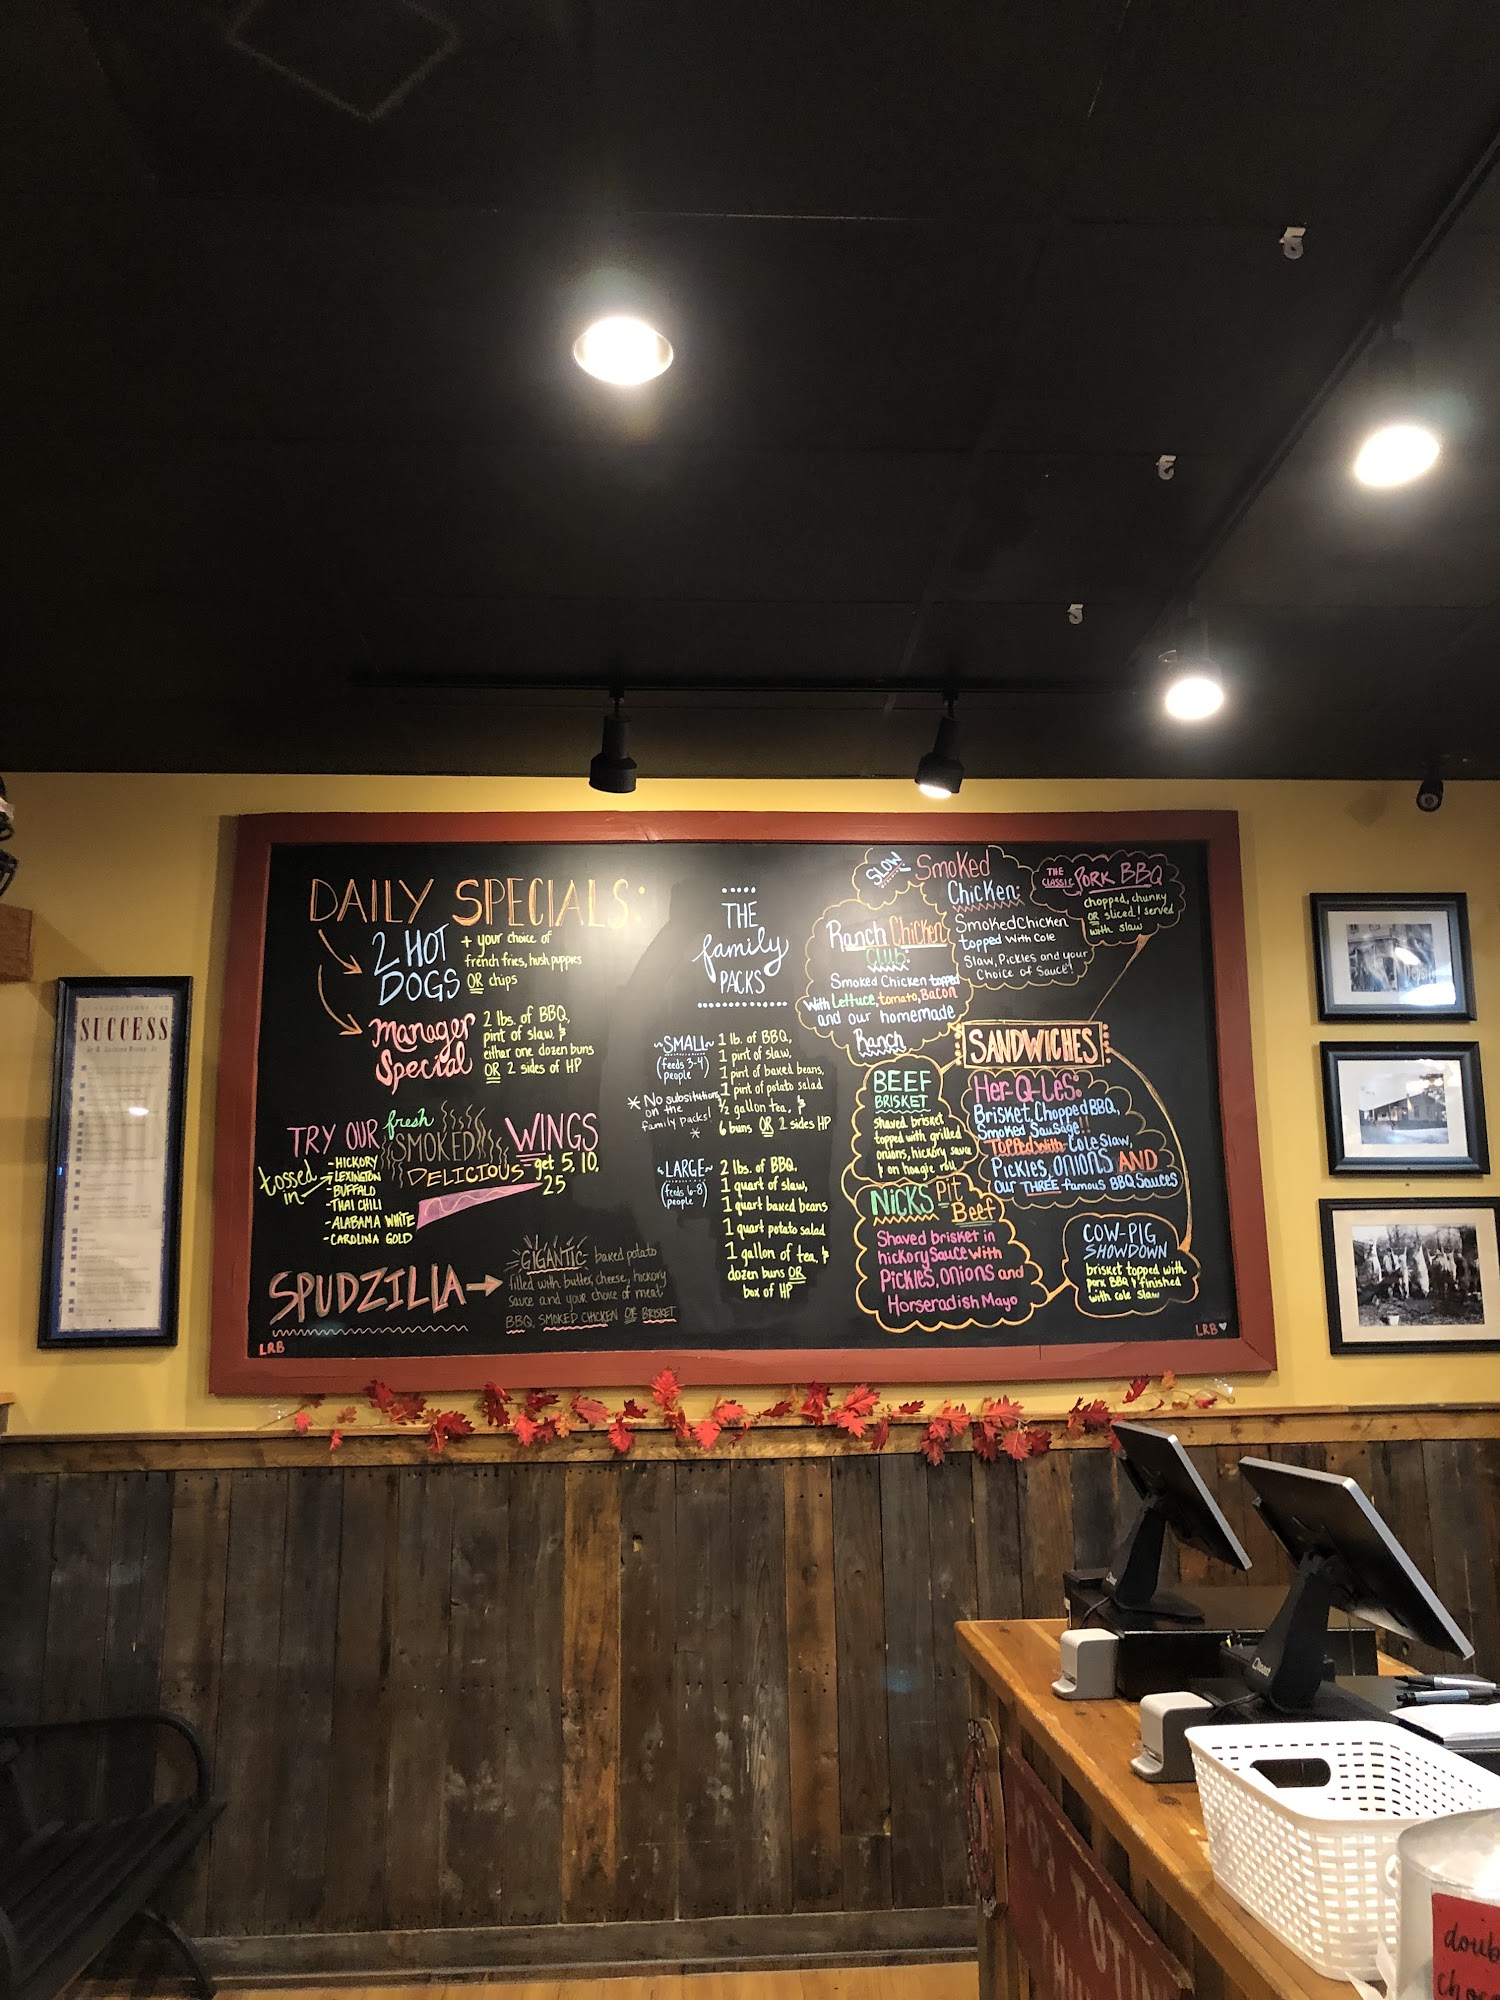 DAILY SPECIALS:
2 HOT
DOGS
+ your choice of
french fries, hush puppies
OR chips
Manager
Special
2 lbs. of BBQ,
pint of slaw, &
either one dozen buns
OR 2 sides of HP
TRY OUR fresh
SMOKED
DELICIOUS
WINGS
- get 5, 10,
25
tossed
in
- HICKORY
- LEXINGTON
- BUFFALO
- THAI CHILI
- ALABAMA WHITE
- CAROLINA GOLD
SPUDZILLA →
GIGANTIC baked potato
filled with butter, cheese, hickory
sauce and your choice of meat
BBQ, SMOKED CHICKEN OR BRISKET
LRB
THE
family
PACKS
~SMALL~
(feeds 3-4
people)
* No subsitutions
on the
family packs!
*
1 lb. of BBQ,
1 pint of slaw,
1 pint of baked beans,
1 pint of potato salad
½ gallon tea, &
6 buns OR 2 sides HP
~LARGE~
(feeds 6-8
people)
2 lbs. of BBQ,
1 quart of slaw,
1 quart baked beans
1 quart potato salad
1 gallon of tea, &
dozen buns OR
box of HP
SLOW
Smoked
Chicken:
Smoked Chicken
topped With Cole
Slaw, Pickles and your
Choice of Sauce!
THE
CLASSIC PORK BBQ
chopped, chunky
OR sliced! served
with slaw
Ranch Chicken
Club:
Smoked Chicken topped
with Lettuce, tomato, Bacon
and our homemade
Ranch
SANDWICHES
BEEF
BRISKET
shaved brisket
topped with grilled
onions, hickory sauce
& on hoagie roll
Her-Q-Les:
Brisket, Chopped BBQ,
Smoked Sausage!!
Topped with Cole Slaw,
Pickles, onions AND
our THREE famous BBQ Sauces
NICKS Pit
Beef
Shaved brisket in
hickory Sauce with
Pickles, onions and
Horseradish Mayo
COW-PIG
SHOWDOWN
brisket topped with
pork BBQ & finished
with cole slaw
LRB
SUCCESS